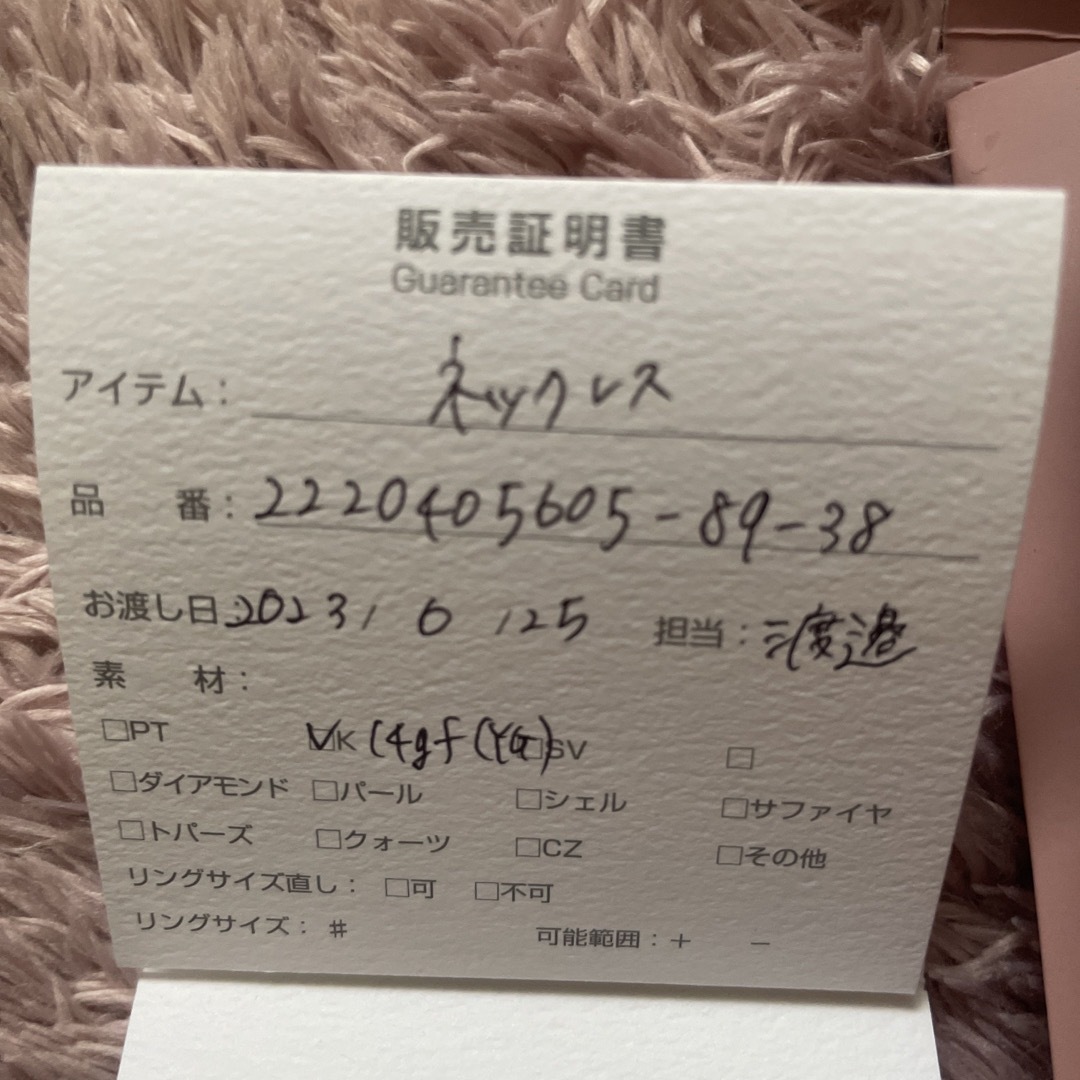 販売証明書
Guarantee Card
アイテム： ネックレス
品　番：2220405605-89-38
お渡し日：2023/ 6 /25 担当：渡邉
素　材：
□PT ☑K 14gf (YG) □SV □
□ダイアモンド □パール □シェル □サファイヤ
□トパーズ □クォーツ □CZ □その他
リングサイズ直し： □可 □不可
リングサイズ： # 可能範囲：＋ －